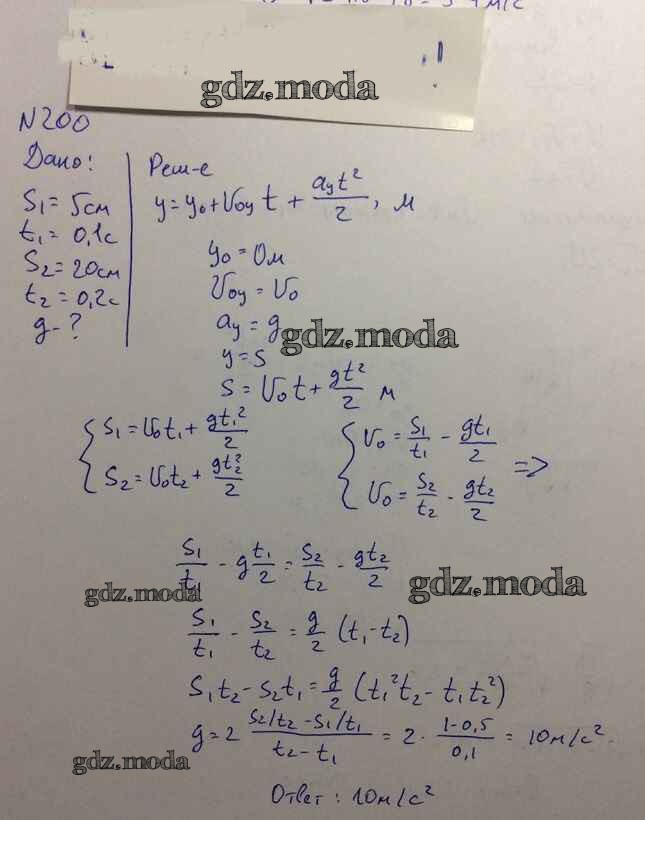 gdz.moda
N200
Дано:
S₁ = 5см
t₁ = 0,1с
S₂ = 20см
t₂ = 0,2с
g - ?
Реш-е
y = y₀ + υ₀y t + ayt²/2, м
y₀ = 0м
υ₀y = υ₀
ay = g
gdz.moda
y = s
s = υ₀t + gt²/2 м
{ S₁ = υ₀t₁ + gt₁²/2
S₂ = υ₀t₂ + gt₂²/2
{ υ₀ = S₁/t₁ - gt₁/2
υ₀ = S₂/t₂ - gt₂/2 =>
S₁/t₁ - g t₁/2 = S₂/t₂ - gt₂/2
gdz.moda
gdz.moda
S₁/t₁ - S₂/t₂ = g/2 (t₁ - t₂)
S₁t₂ - S₂t₁ = g/2 (t₁²t₂ - t₁t₂²)
g = 2 S₂/t₂ - S₁/t₁ / t₂ - t₁ = 2 · 1-0,5 / 0,1 = 10м/с².
gdz.moda
Ответ: 10м/с²